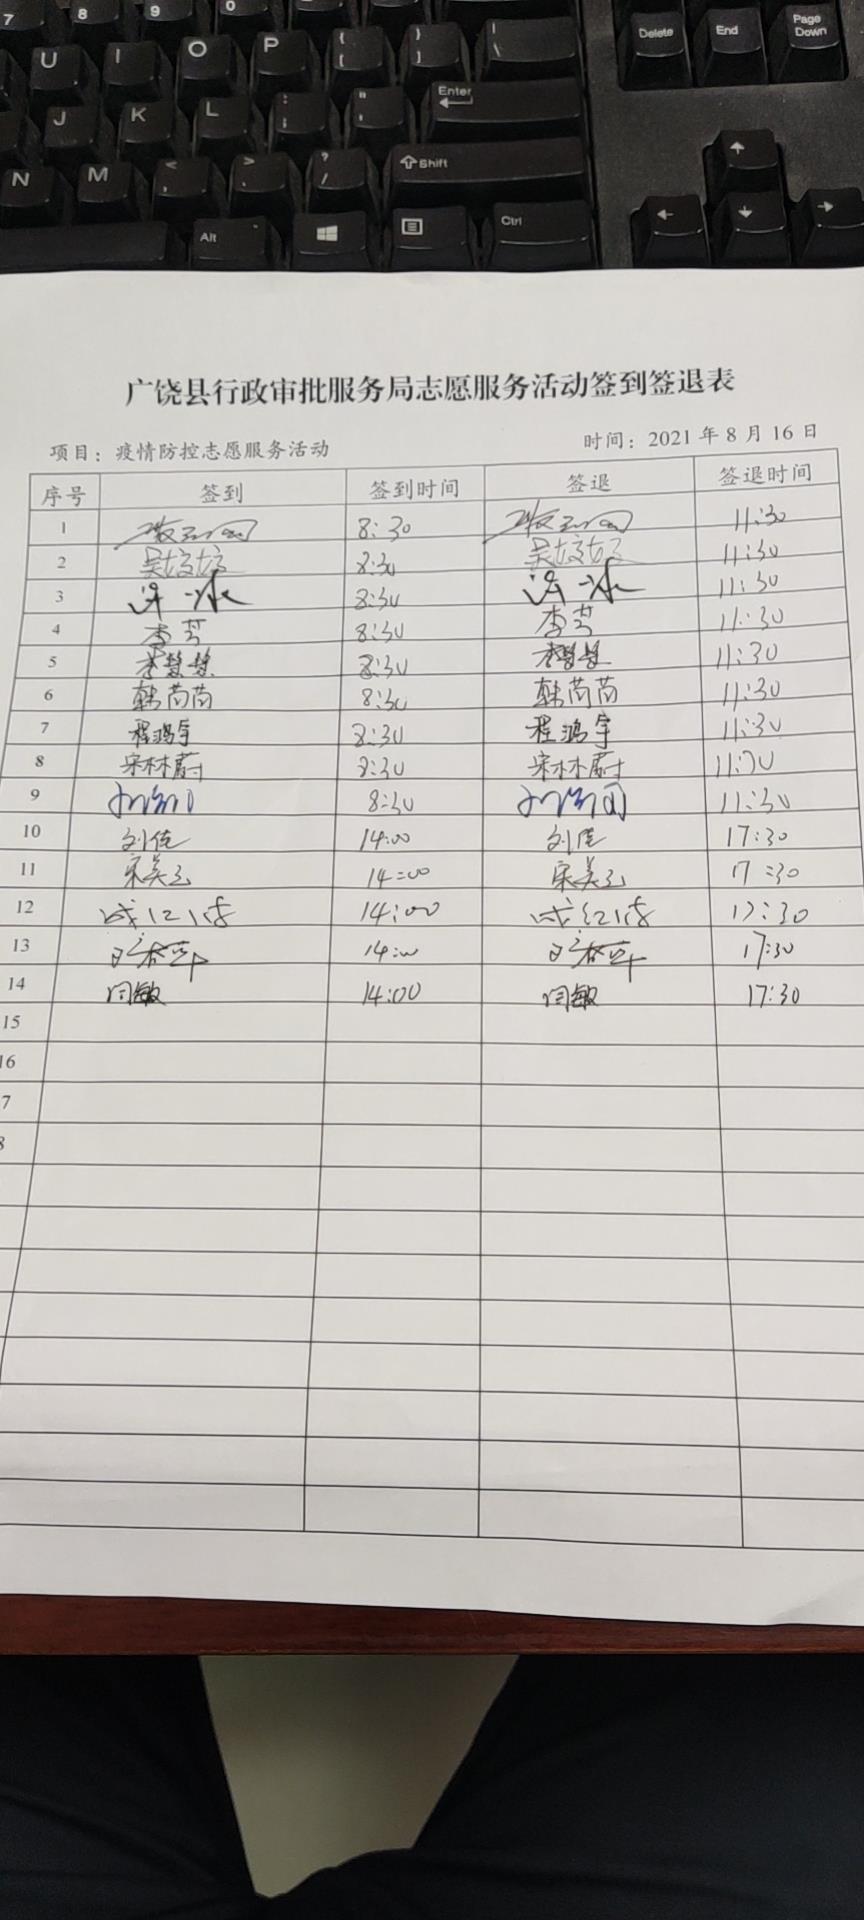 7 8 9 0
U I O P { [ } ] | \ Delete End Page Down
J K L : ; " ' Enter
N M < , > . ? / Shift
Alt Ctrl
广饶县行政审批服务局志愿服务活动签到签退表
项目：疫情防控志愿服务活动 时间：2021年8月16日
序号 签到 签到时间 签退 签退时间
1 8:30 11:30
2 吴姣姣 8:30 吴姣姣 11:30
3 许一冰 8:30 许一冰 11:30
4 李芳 8:30 李芳 11:30
5 李慧慧 8:30 李慧慧 11:30
6 韩苘苘 8:30 韩苘苘 11:30
7 程鸿宇 8:30 程鸿宇 11:30
8 宋林蔚 8:30 宋林蔚 11:30
9 8:30 11:30
10 刘佳 14:00 刘佳 17:30
11 宋美玉 14:00 宋美玉 17:30
12 14:00 17:30
13 14:00 17:30
14 闫敏 14:00 闫敏 17:30
15
16
7
8